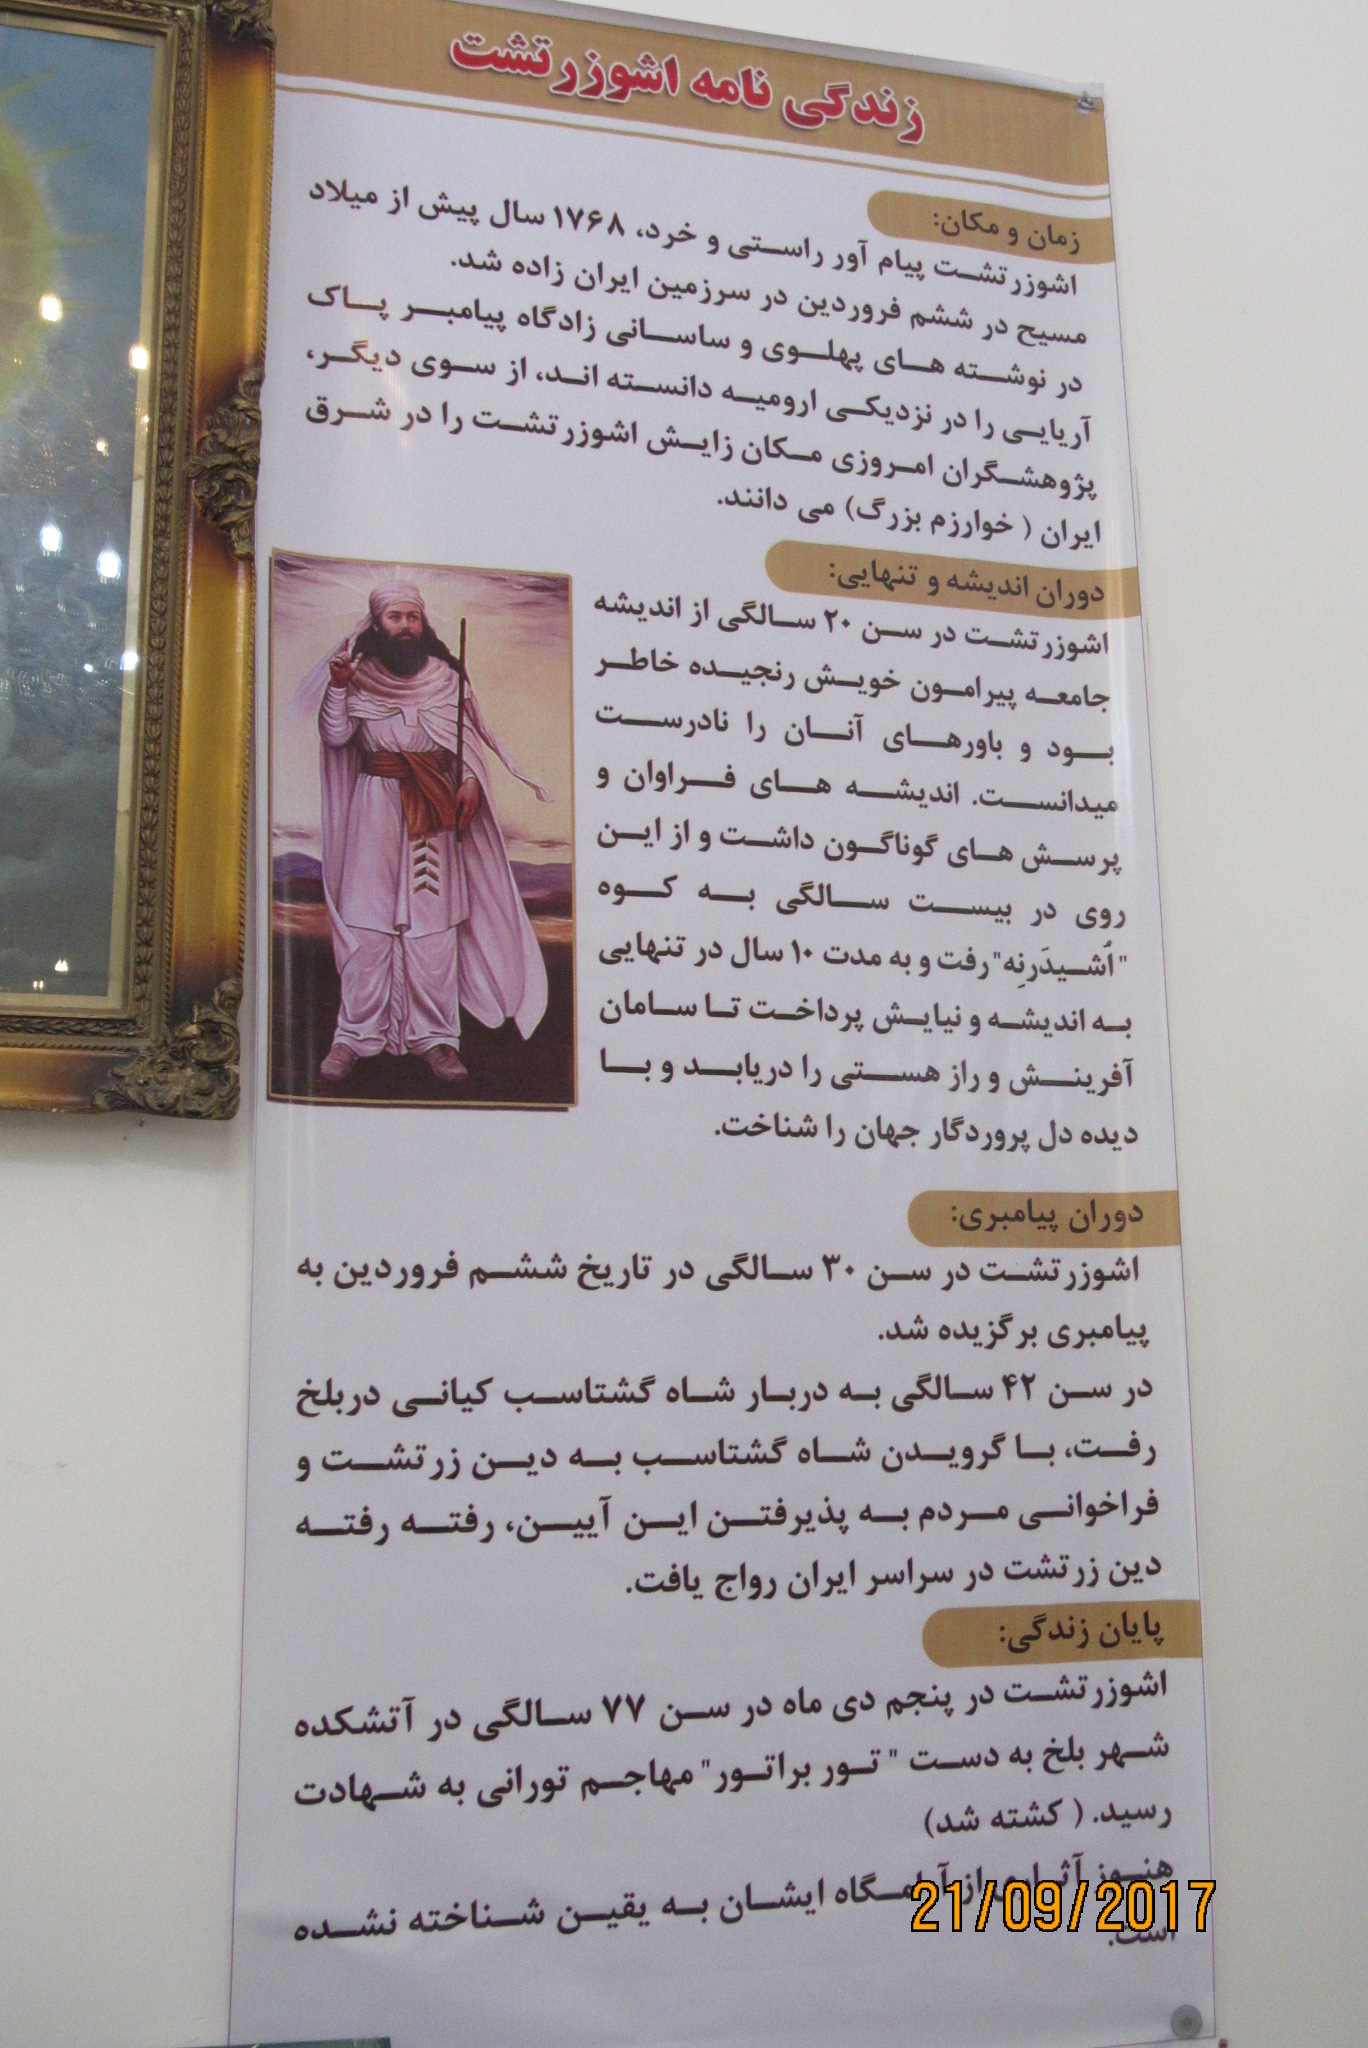 زندگی نامه اشوزرتشت
زمان و مکان:
اشوزرتشت پیام آور راستی و خرد، ۱۷۶۸ سال پیش از میلاد
مسیح در ششم فروردین در سرزمین ایران زاده شد.
در نوشته های پهلوی و ساسانی زادگاه پیامبر پاک
آریایی را در نزدیکی ارومیه دانسته اند، از سوی دیگر،
پژوهشگران امروزی مکان زایش اشوزرتشت را در شرق
ایران ( خوارزم بزرگ) می دانند.
دوران اندیشه و تنهایی:
اشوزرتشت در سن ۲۰ سالگی از اندیشه
جامعه پیرامون خویش رنجیده خاطر
بود و باورهای آنان را نادرست
میدانست. اندیشه های فراوان و
پرسش های گوناگون داشت و از این
روی در بیست سالگی به کوه
"اُشیدَرِنه" رفت و به مدت ۱۰ سال در تنهایی
به اندیشه و نیایش پرداخت تا سامان
آفرینش و راز هستی را دریابد و با
دیده دل پروردگار جهان را شناخت.
دوران پیامبری:
اشوزرتشت در سن ۳۰ سالگی در تاریخ ششم فروردین به
پیامبری برگزیده شد.
در سن ۴۲ سالگی به دربار شاه گشتاسب کیانی دربلخ
رفت، با گرویدن شاه گشتاسب به دین زرتشت و
فراخوانی مردم به پذیرفتن این آیین، رفته رفته
دین زرتشت در سراسر ایران رواج یافت.
پایان زندگی:
اشوزرتشت در پنجم دی ماه در سن ۷۷ سالگی در آتشکده
شهر بلخ به دست " تور براتور" مهاجم تورانی به شهادت
رسید. ( کشته شد)
هنوز آثاری از آرامگاه ایشان به یقین شناخته نشده
است.
21/09/2017